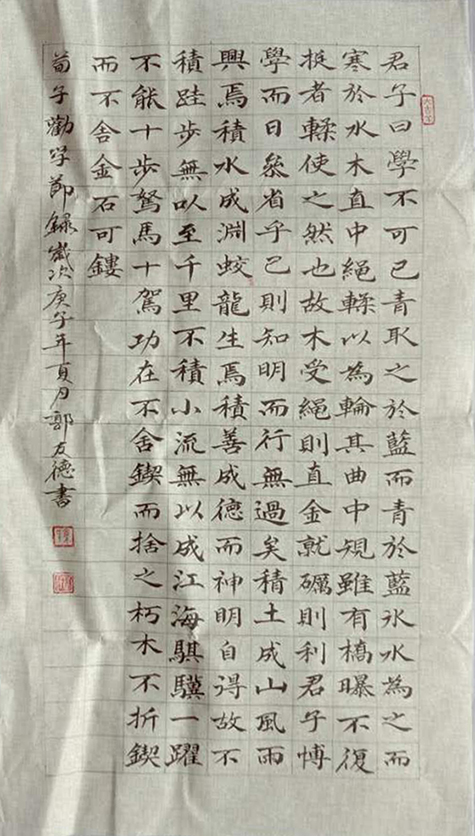 君子曰學不可已青取之於藍而青於藍冰水為之而
寒於水木直中繩輮以為輪其曲中規雖有槁曝不復
挺者輮使之然也故木受繩則直金就礪則利君子博
學而日叅省乎己則知明而行無過矣積土成山風雨
興焉積水成淵蛟龍生焉積善成德而神明自得故不
積跬步無以至千里不積小流無以成江海騏驥一躍
不能十步駑馬十駕功在不舍鍥而捨之朽木不折鍥
而不舍金石可鏤
荀子勸学節錄歲次庚子年夏月郭友德書